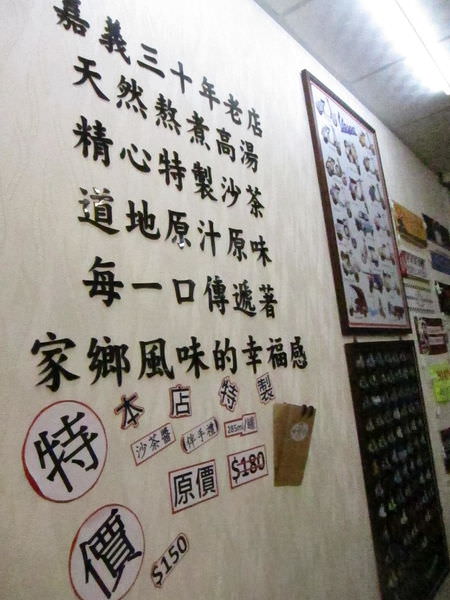 嘉義三十年老店
天然熬煮高湯
精心特製沙茶
道地原汁原味
每一口傳遞著
家鄉風味的幸福感
本店特製
沙茶醬 伴手禮 285ml/罐
原價 $180
特價 $150